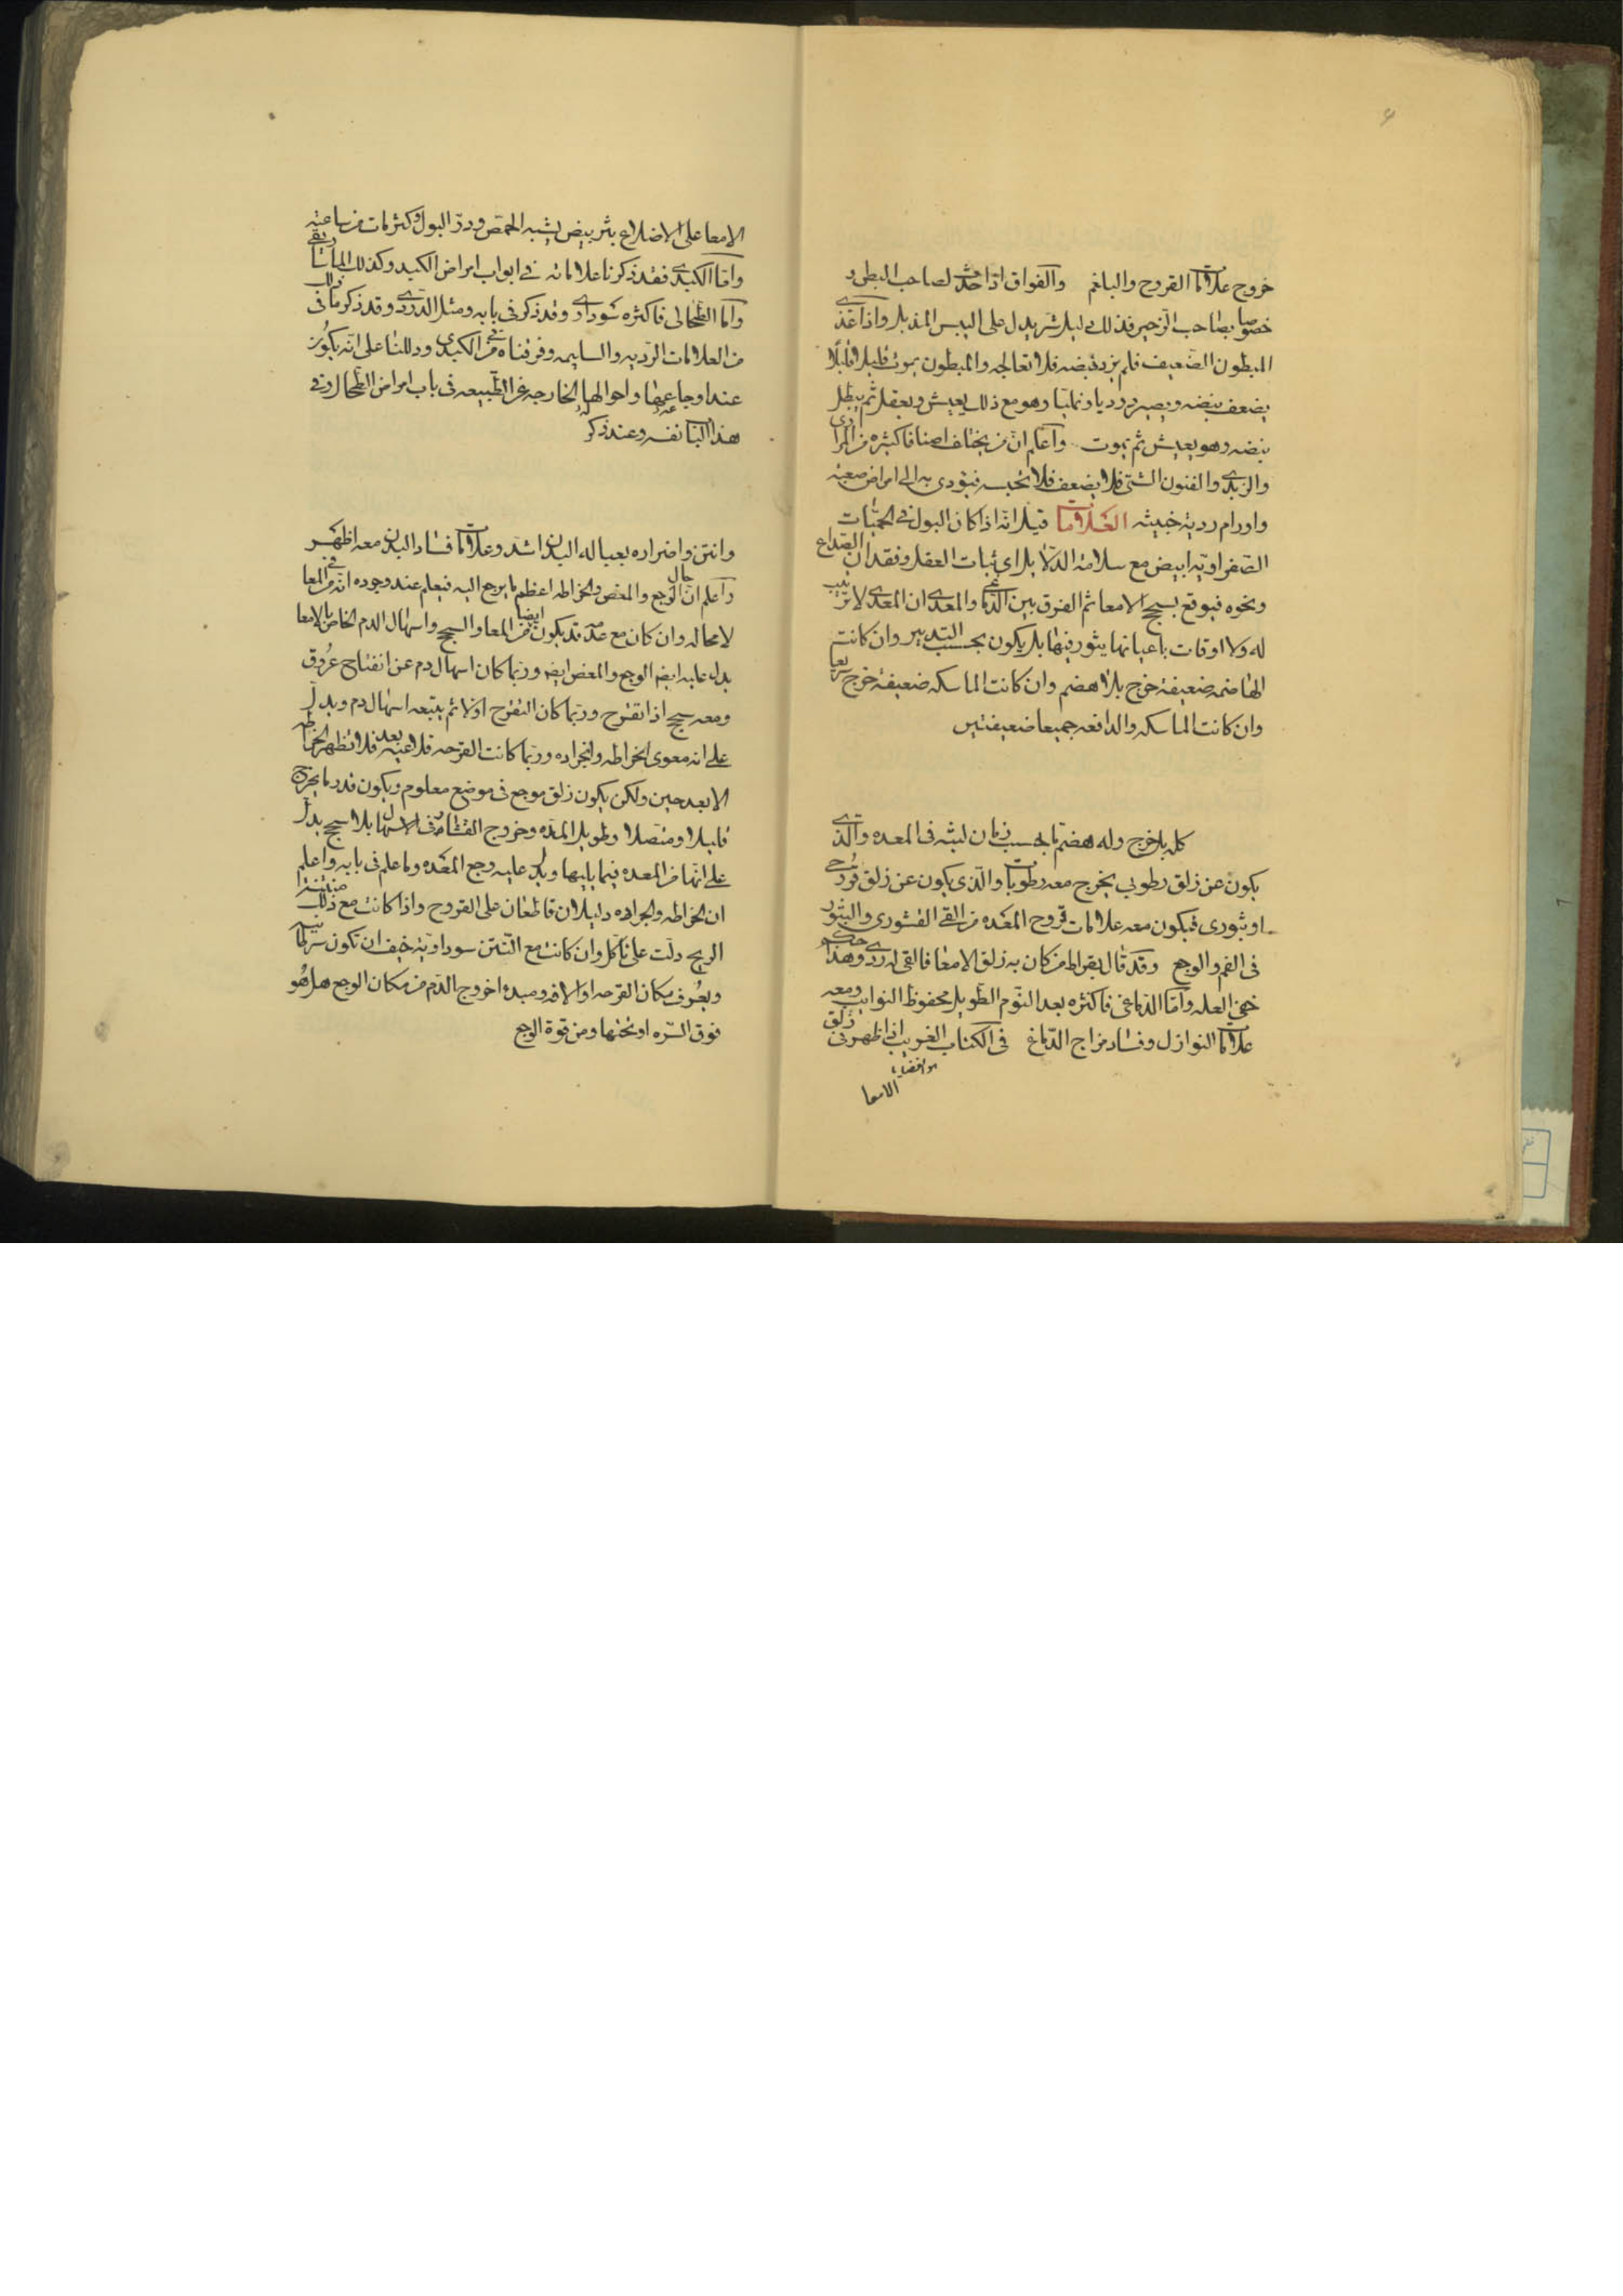 خروج علامات القروح والبلغم والفواق اذا حدث لصاحب البطن رد
خصوصا بصاحب الزحير فذلك دليل شر يدل على اليبس المذبل واذا غذى
المبطون الضعيف فلم يزد نبضه فلا تعالجه والمبطون يموت قليلا قليلا
يضعف نبضه ويصير دوديا ونمليا وهو مع ذلك يعيش ويعقل ثم يبطل
نبضه وهو يعيش ثم يموت واعلم ان من يختلف اصنافا كثيره من المرا
والزبدى والفنون الشتى فلا يضعف فلا تحبسه فيؤدى به الى امراض صعبه
واورام رديه خبيثه العلامات قيل انه اذا كان البول فى الحميات
الصفراويه ابيض مع سلامة الدلايل اى ثبات العقل وفقدان الصداع
ونحوه فيوقع بسحج الامعا ثم الفرق بين الدماغى والمعدى ان المعدى لا ترتيب
له ولا اوقات باعيانها يثور فيها بل يكون بحسب التدبير وان كانت
الهاضمه ضعيفة خرج بلا هضم وان كانت الماسكه ضعيفة خرج سريعا
وان كانت الماسكه والدافعه جميعا ضعيفتين
كل يلا خرج وله هضم ما بحسب زمان لبثه فى المعده والذى
يكون عن زلق رطوبى يخرج معه رطوبات والذى يكون عن زلق قروحى
او بثورى فيكون معه علامات قروح المعده من القى القشورى والبثور
فى الفم والوجع وقد قال بقراط من كان به زلق الامعا فالقى له ردى وهذا حكم
خفى العله واما الدماغى فاكثره بعد النوم الطويل محفوظ النوايب ومعه
علامات النوازل وفساد مزاج الدماغ فى الكتاب الغريب اذا ظهر فى زلق
الامعا
الامعا على الاضلاع بثر بيض يشبه الحمص ودر البول وكثر مات من ساعته
واما الكبدى فقد ذكرنا علاماته فى ابواب امراض الكبد وكذلك الماساريقى
واما الطحالى فاكثره سوداوى وقد ذكر فى بابه ومثل الدردى وقد ذكر ما فى ذلك
من العلامات الرديه والسليمه وفرقناه من الكبدى ودللنا على انه يكون
عند اوجاعها واحوالها الخارجه عن الطبيعه فى باب امراض الطحال وفى
هذا الباب نفسه وعند ذكر
وانتن واضراره بعياله البدن اشد وعلامات فساد البدن معه اظهر
واعلم ان حال الوجع والمغص والخراطه اعظم ما يرجع اليه فيعلم عند وجوده انه من المعا
لا محاله وان كان مع عدمه قد يكون ايضا من المعا والسحج واسهال الدم الخاص بالامعا
يدل عليه ايضا الوجع والمغص ايضا وربما كان اسهال دم عن انفتاح عروق
ومعه سحج اذا تقرح وربما كان التقرح اولا ثم يتبعه اسهال دم ويدل
على انه معوى الخراطه والجراده وربما كانت القرحه قلاعيه بعد فلا تظهر الخراطه
الا بعد حين ولكن يكون زلق موجع فى موضع معلوم ويكون قدر ما يخرج
قليلا ومتصلا وطويل المده وخروج القشار فى الاسهال بلا سحج يدل
على انها من المعده فيما يليها ويدل عليه وجع المعده وما علم فى بابه واعلم
ان الخراطه والجراده دليلان قاطعان على القروح واذا كانت مع ذلك منتنة
الريح دلت على تاكل وان كانت مع النتن سوداويه خيف ان تكون سرطانيه
ويعرف مكان القرحه اولا فى ومبدء اخروج الدم من مكان الوجع هل هو
فوق السره او تحتها ومن قوة الوجع